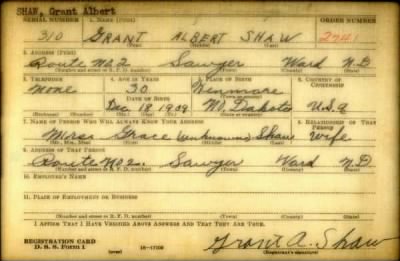 SHAW, Grant Albert
SERIAL NUMBER 1. NAME (Print) ORDER NUMBER
310 GRANT ALBERT SHAW 2741
(First) (Middle) (Last)
2. ADDRESS (Print)
Route No 2 Sawyer Ward N D
3. TELEPHONE 4. AGE IN YEARS 5. PLACE OF BIRTH 6. COUNTRY OF CITIZENSHIP
None 30 Kenmare
DATE OF BIRTH
Dec 18 1909 No. Dakota U.S.A
7. NAME OF PERSON WHO WILL ALWAYS KNOW YOUR ADDRESS 8. RELATIONSHIP OF THAT PERSON
Mrs. Grace (unknown) Shaw Wife
(Mr., Mrs., Miss) (First) (Middle) (Last)
9. ADDRESS OF THAT PERSON
Route No 2. Sawyer Ward N.D
(Number and street or R. F. D. number) (Town) (County) (State)
10. EMPLOYER'S NAME
11. PLACE OF EMPLOYMENT OR BUSINESS
(Number and street or R. F. D. number) (Town) (County) (State)
I AFFIRM THAT I HAVE VERIFIED ABOVE ANSWERS AND THAT THEY ARE TRUE.
REGISTRATION CARD
D. S. S. Form 1 (over) 16-17105 Grant A. Shaw
(Registrant's signature)